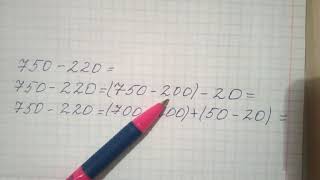 750-220=
750-220=(750-200)-20=
750-220=(700-200)+(50-20)=